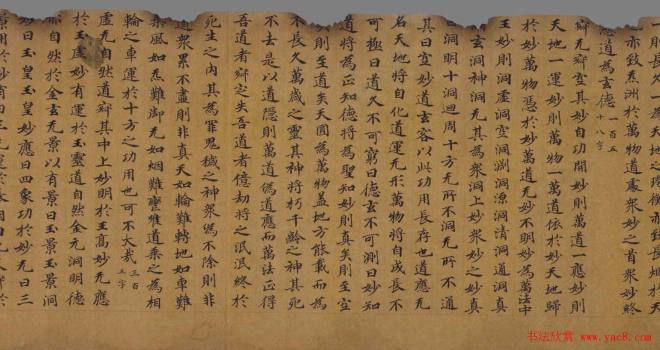 元亦致無洲於萬物道處眾妙之首眾妙終
德道為玄德 一百五十八字
辯無辯室其妙自功開妙則萬道一應妙則
天地一運妙則萬物一萬道依於妙天地歸
於妙萬物憑於妙萬道無妙不明妙為萬法中
王妙則洞虛洞空洞淵洞源洞清洞通洞
玄洞神洞無其為眾洞上妙眾妙之妙真
洞明十洞週周十方無所不洞無所不通
其曰空妙道玄容以此功用長存也道應無
名天地將自化道運無形萬物將自成長不
可極曰道久不可窮曰德玄不可測曰妙知
道將為正知德將為聖知妙則真矣則至空
則至道矣天圓為萬物蓋地方能載而為
不長久萬歲之靈其神將朽千齡之神其死
不去是以道隱則萬道為道應而萬法正得
吾道者辯定失吾道者億劫將之泯泯終於
死生之內其為罪鬼穢之神眾為不除則非
道眾累不盡則非真天如輪難轉地如車難
乘風如馬難御無如烟難攀唯道乘之為相
輪之車運於十方之功用也可不大哉 三百三字
虛無自然道辯其中上妙明於王高妙無應
於玉虛妙有運於玉靈道自然金元洞明德
亦自然於金玄無景以有景曰玉景玉景洞
妙曰玉皇玉皇妙應曰四象功於妙無曰三
书法欣赏 www.yac8.com